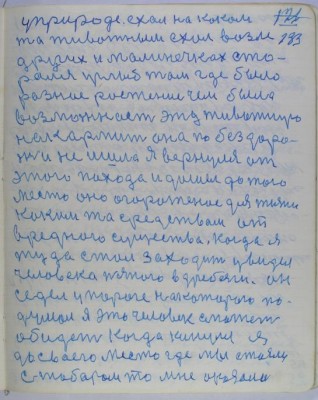 у природе. ехал на каком
та животным ехал возле
других и маминечках ста-
рался
там где было
разное растение чем была
возможност эту животную
накармит она по бездоро-
жи не шла я вернулся от
этого похода и дошли до того
место оно огороженое для
каким та средствам от
вредного существа. Когда я
туда стал заходит увидел
человека пяного вдребезги. он
седел у пороге на которого по-
думал я это человек сможет
обидет Когда кинулся я
до своего место где мы стояли
с табаром то мне оказали
133